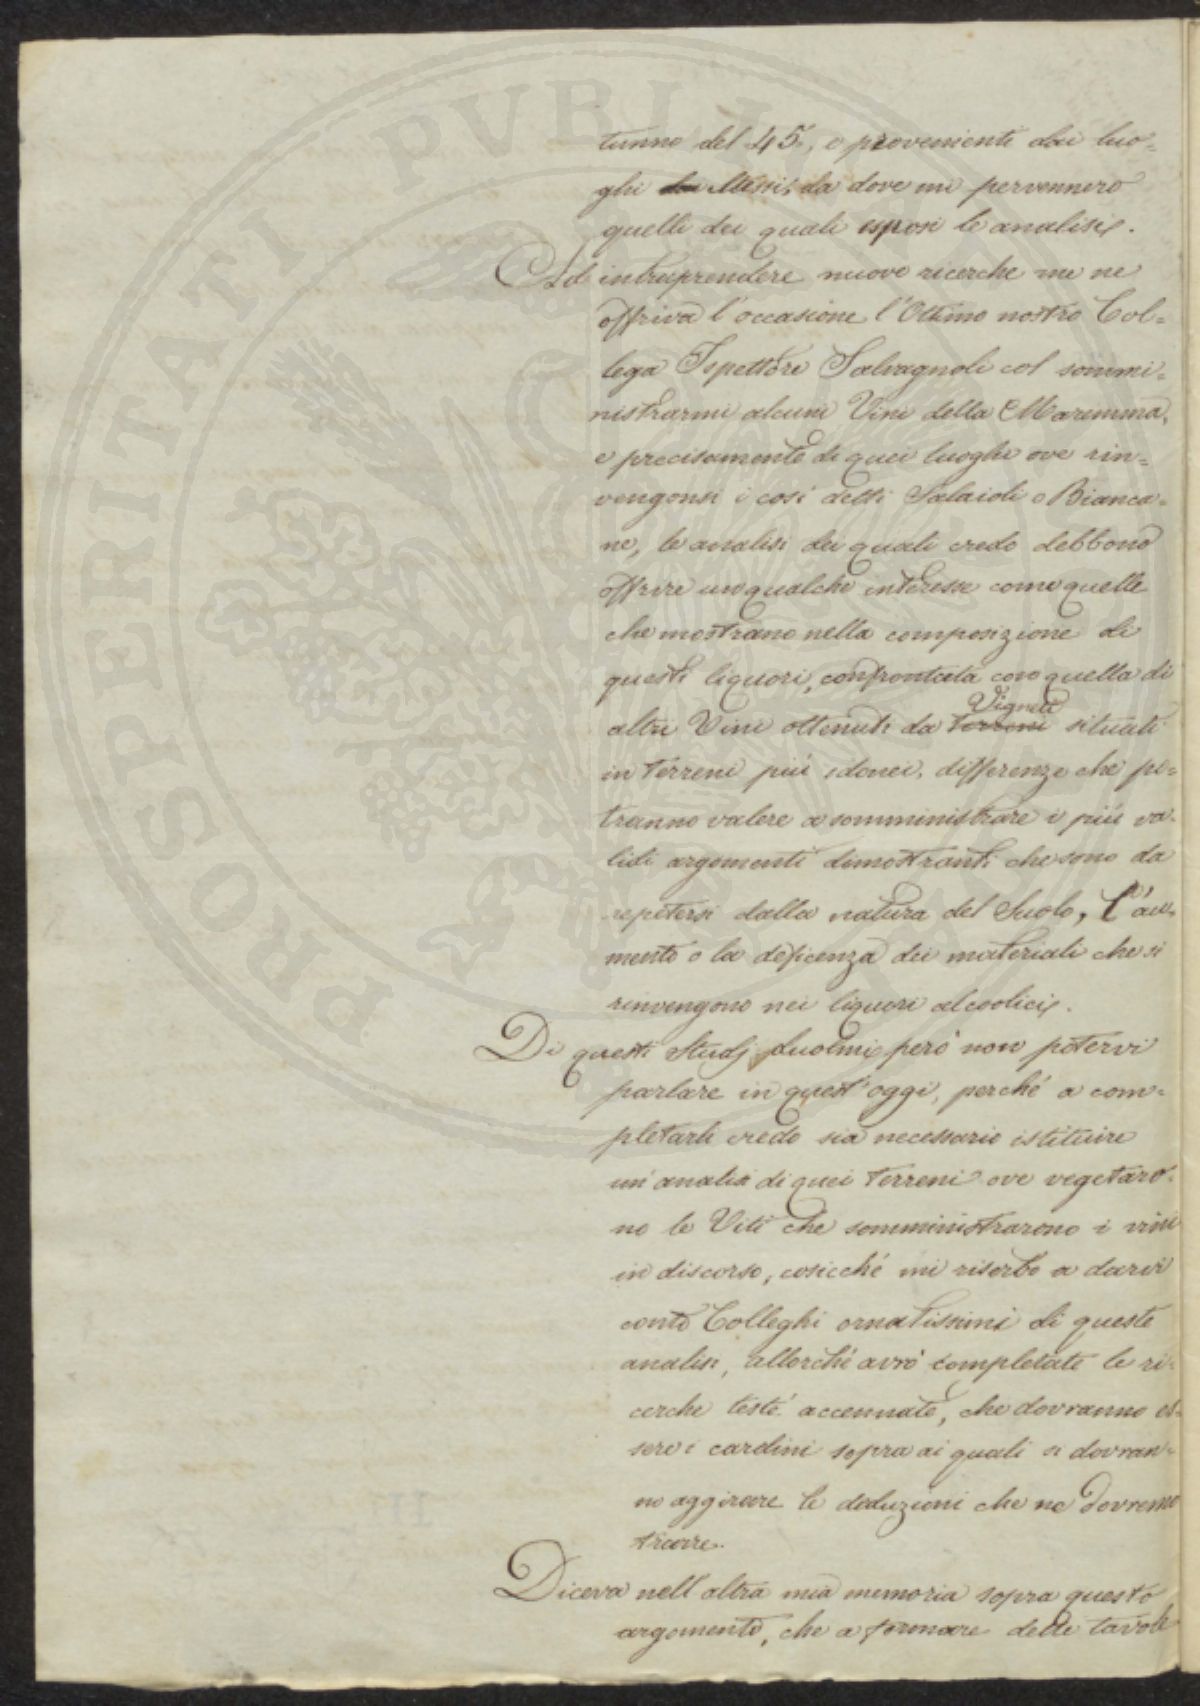 tunno del 45, e provenienti dai luo=
ghi dai Messi, da dove mi pervennero
quelli dei quali esposi le analisi.
Ad intraprendere nuove ricerche me ne
offriva l'occasione l'Ottimo nostro Col=
lega Ispettore Salvagnoli col sommi=
nistrarmi alcuni Vini della Maremma,
e precisamente di quei luoghi ove rin=
vengonsi i così detti Salaioli o Bianca=
ne, le analisi dei quali credo debbono
offrire un qualche interesse come quelle
che mostrano nella composizione di
questi liquori, confrontata con quella di
Vigneti
altri Vini ottenuti da terreni situati
in Terreni più idonei, differenze che po=
tranno valere a somministrare i più va=
lidi argomenti dimostranti che sono da
repetersi dalla natura del Suolo, l'au=
mento o la deficenza dei materiali che si
rinvengono nei liquori alcoolici.
Di questi Studj duolmi però non potervi
parlare in quest'oggi, perché a com=
pletarli credo sia necessario istituire
un'analisi di quei Terreni ove vegetaro=
no le Viti che somministrarono i vini
in discorso, cosicché mi riserbo a darvi
conto Colleghi ornatissimi di queste
analisi, allorché avrò completate le ri=
cerche testé accennate, che dovranno es=
sere i cardini sopra ai quali si dovran=
no aggirare le deduzioni che ne dovremo
trarre.
Diceva nell'altra mia memoria sopra questo
argomento, che a formare delle tavole
PROSPERITATI PVBLI